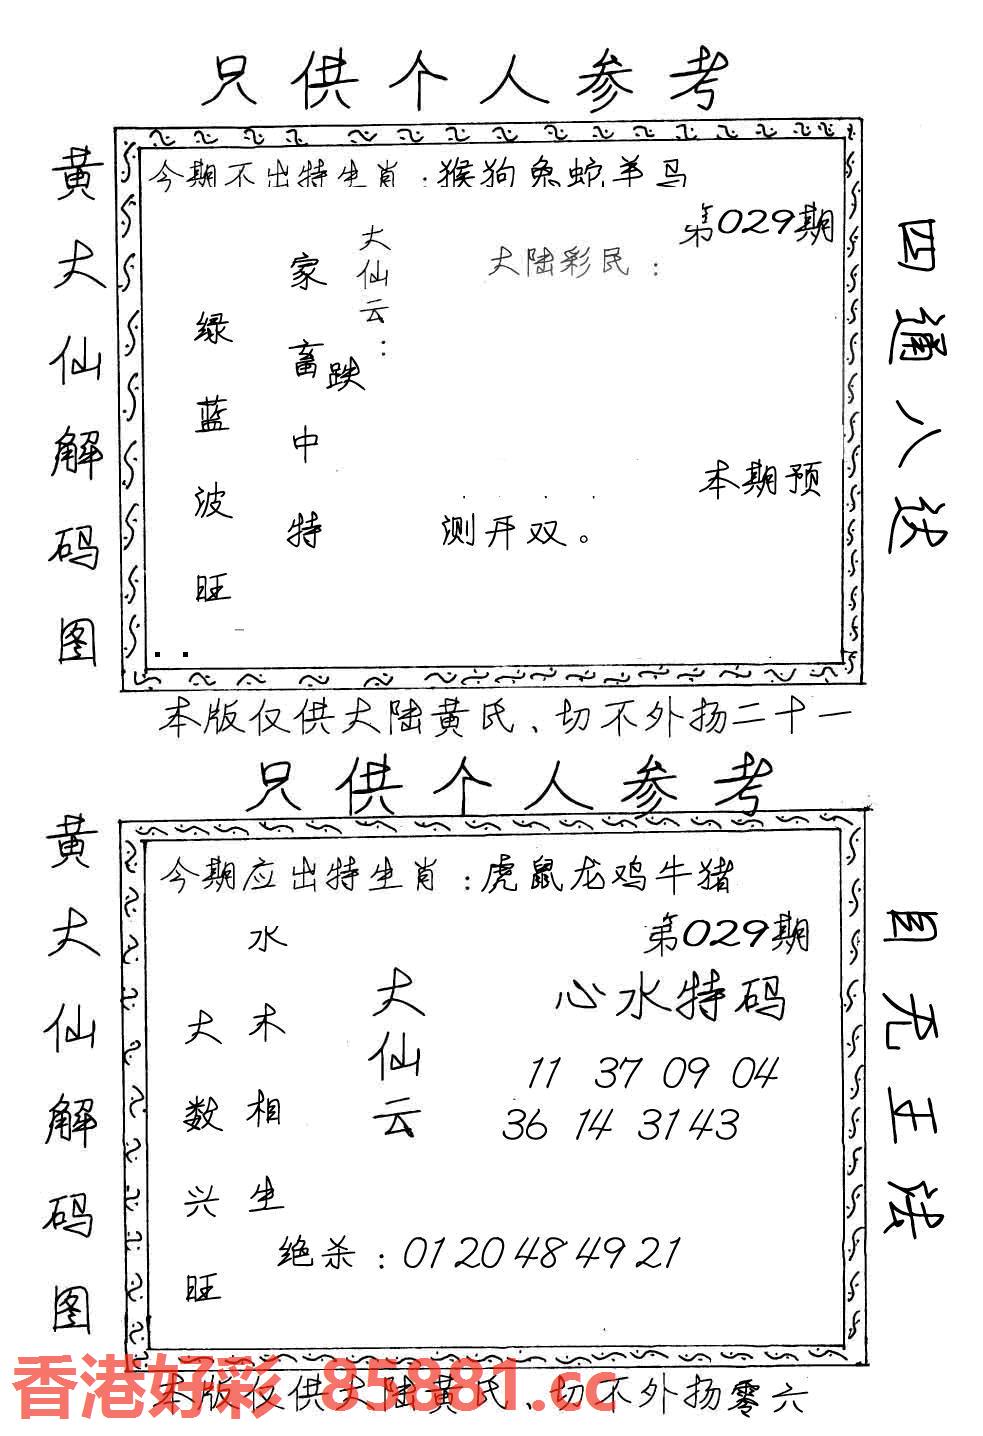 只供个人参考
黄大仙解码图
今期不出特生肖：猴狗兔蛇羊马
第029期
大陆彩民：
大仙云：
家畜中特
跌
绿蓝波旺
本期预
测开双。
四通八达
本版仅供大陆黄氏、切不外扬二十一
只供个人参考
黄大仙解码图
今期应出特生肖：虎鼠龙鸡牛猪
第029期
心水特码
大仙云
水木相生
大数兴旺
11 37 09 04
36 14 31 43
绝杀：01 20 48 49 21
自无王法
香港好彩 85881.cc
本版仅供大陆黄氏、切不外扬零六